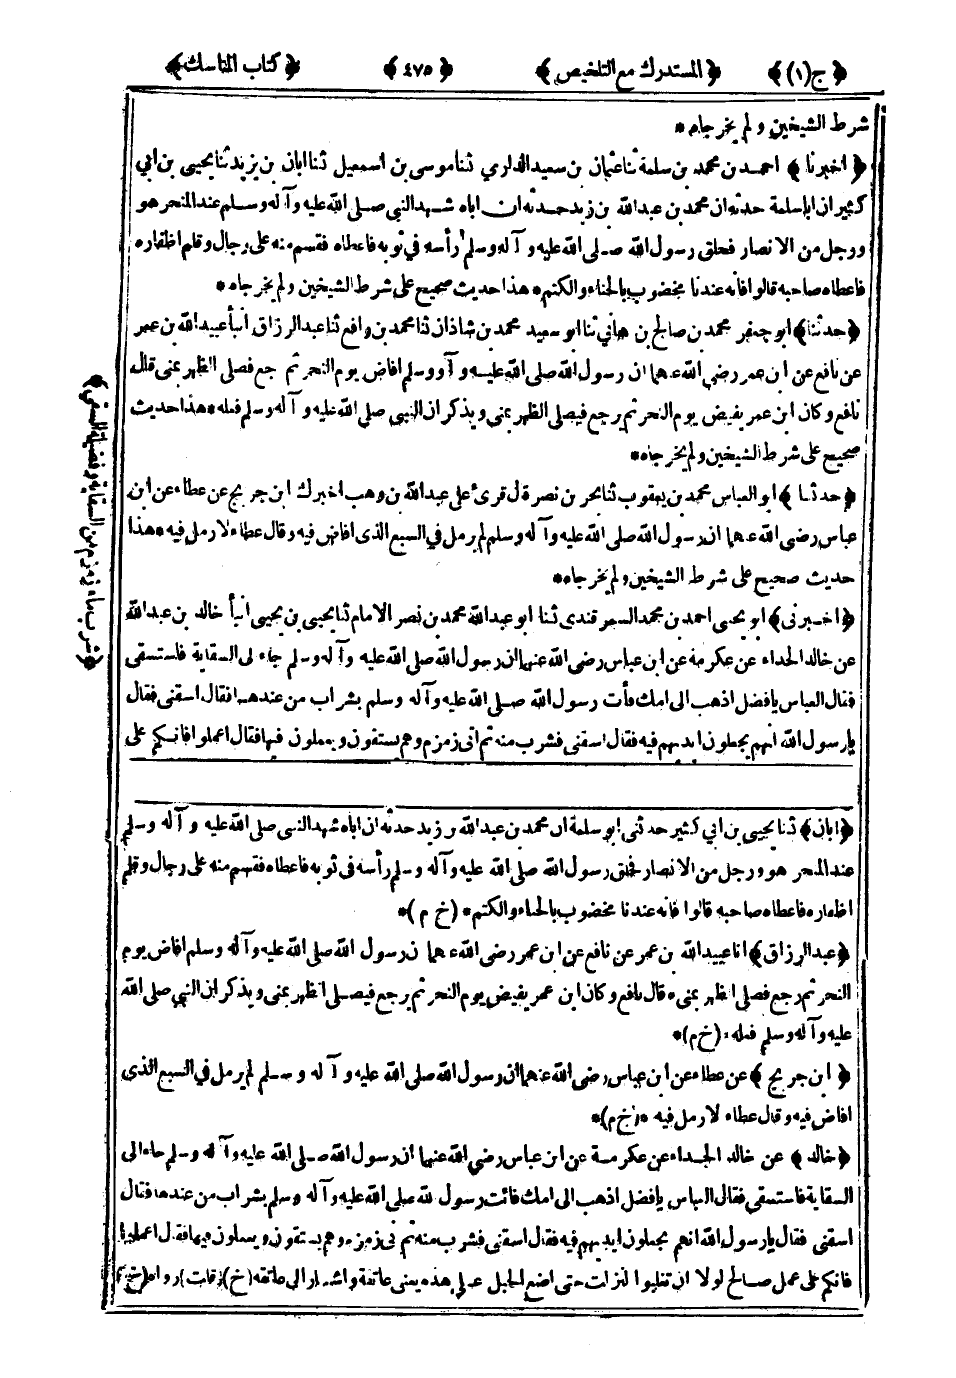 ﴿ج(١)﴾ ﴿المستدرك مع التلخيص﴾ ﴿٤٧٥﴾ ﴿كتاب المناسك﴾
شرط الشيخين ولم يخرجاه *
﴿اخبرنا﴾ احمد بن محمد بن سلمة ثنا عثمان بن سعيد الدارمي ثنا موسى بن اسمعيل ثنا ابان بن يزيد ثنا يحيى بن ابي
كثير ان ابا سلمة حدثه ان محمد بن عبد الله بن زيد حدثه ان اباه شهد النبي صلى الله عليه وآله وسلم عند المنحر هو
ورجل من الانصار فحلق رسول الله صلى الله عليه وآله وسلم رأسه في ثوبه فاعطاه فقسم منه على رجال وقلم اظفاره
فاعطاه صاحبه قالوا فانه عندنا مخضوب بالحناء والكتم * هذا حديث صحيح على شرط الشيخين ولم يخرجاه *
﴿حدثنا﴾ ابو جعفر محمد بن صالح بن هاني ثنا ابو سعيد محمد بن شاذان ثنا محمد بن رافع ثنا عبد الرزاق انبأ عبيد الله بن عمر
عن نافع عن ابن عمر رضي الله عنهما ان رسول الله صلى الله عليه وآله وسلم افاض يوم النحر ثم رجع فصلى الظهر بمنى قال
نافع وكان ابن عمر يفيض يوم النحر ثم يرجع فيصلى الظهر بمنى ويذكر ان النبي صلى الله عليه وآله وسلم فعله * هذا حديث
صحيح على شرط الشيخين ولم يخرجاه *
﴿حدثنا﴾ ابو العباس محمد بن يعقوب ثنا بحر بن نصر قال قرئ على عبد الله بن وهب اخبرك ابن جريج عن عطاء عن ابن
عباس رضى الله عنهما ان رسول الله صلى الله عليه وآله وسلم لم يرمل في السبع الذى افاض فيه وقال عطاء لا رمل فيه * هذا
حديث صحيح على شرط الشيخين ولم يخرجاه *
﴿اخبرنى﴾ ابو يحيى احمد بن محمد السمرقندى ثنا ابو عبد الله محمد بن نصر الامام ثنا يحيى بن يحيى انبأ خالد بن عبد الله
عن خالد الحذاء عن عكرمة عن ابن عباس رضى الله عنهما ان رسول الله صلى الله عليه وآله وسلم جاء الى السقاية فاستسقى
فقال العباس يا فضل اذهب الى امك فأت رسول الله صلى الله عليه وآله وسلم بشراب من عندها فقال اسقنى فقال
يا رسول الله انهم يجعلون ايديهم فيه فقال اسقنى فشرب منه ثم اتى زمزم وهم يستقون ويعملون فيها فقال اعملوا فانكم على
﴿شرب ماء زمزم من السقاية وفضيلة السقى﴾
﴿ابان﴾ ثنا يحيى بن ابي كثير حدثنى ابو سلمة ان محمد بن عبد الله بن زيد حدثه ان اباه شهد النبى صلى الله عليه وآله وسلم
عند المنحر هو ورجل من الانصار فحلق رسول الله صلى الله عليه وآله وسلم رأسه في ثوبه فاعطاه فقسم منه على رجال وقلم
اظفاره فاعطاه صاحبه قالوا فانه عندنا مخضوب بالحناء والكتم * (خ م) *
﴿عبد الرزاق﴾ انا عبيد الله بن عمر عن نافع عن ابن عمر رضى الله عنهما ان رسول الله صلى الله عليه وآله وسلم افاض يوم
النحر ثم رجع فصلى الظهر بمنى * قال نافع وكان ابن عمر يفيض يوم النحر ثم يرجع فيصلى الظهر بمنى ويذكر ان النبي صلى الله
عليه وآله وسلم فعله * (خ م) *
﴿ابن جريج﴾ عن عطاء عن ابن عباس رضى الله عنهما ان رسول الله صلى الله عليه وآله وسلم لم يرمل في السبع الذى
افاض فيه وقال عطاء لا رمل فيه * (خ م) *
﴿خالد﴾ عن خالد الحذاء عن عكرمة عن ابن عباس رضي الله عنهما ان رسول الله صلى الله عليه وآله وسلم جاء الى
السقاية فاستسقى فقال العباس يا فضل اذهب الى امك فائت رسول الله صلى الله عليه وآله وسلم بشراب من عندها فقال
اسقنى فقال يا رسول الله انهم يجعلون ايديهم فيه فقال اسقنى فشرب منه ثم اتى زمزم وهم يستقون ويعملون فيها فقال اعملوا
فانكم على عمل صالح لولا ان تغلبوا لنزلت حتى اضع الحبل على هذه يعنى عاتقه واشار الى عاتقه (خ) (قلت) رواه (خ)